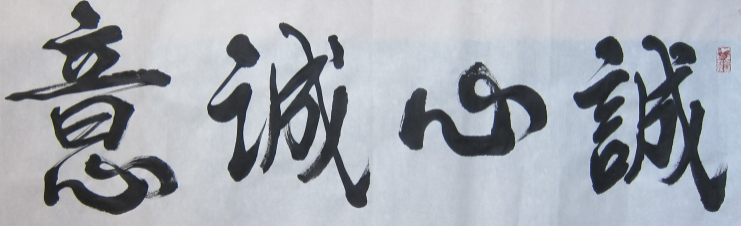 誠心诚意